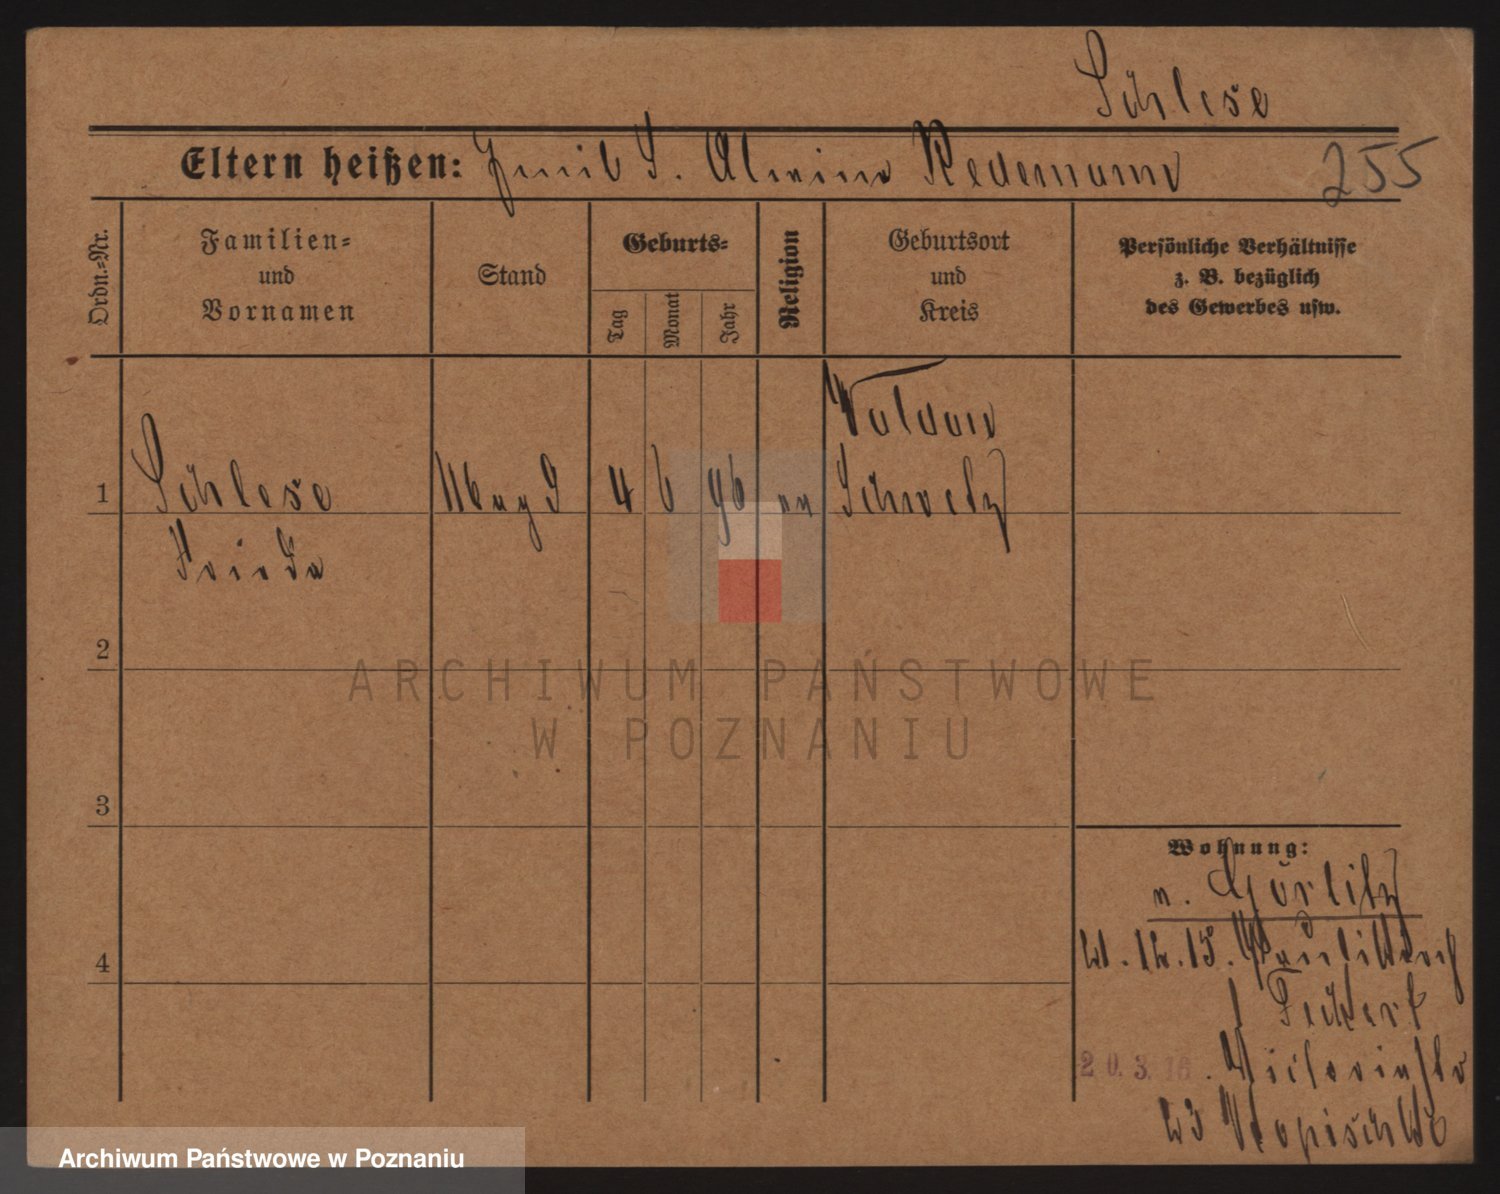 Schlese
Eltern heißen: Emil S. Alwine Redemann 255
Ordn.-Nr.
Familien-
und
Vornamen
Stand
Geburts-
Tag
Monat
Jahr
Religion
Geburtsort
und
Kreis
Persönliche Verhältnisse
z. B. bezüglich
des Gewerbes usw.
1 Schlese
Frieda
4 6 96
Schwetz
2
3
4
Wohnung:
n. Görlitz
21.12.15.
20.3.16. Victoriastr
23
ARCHIWUM PAŃSTWOWE
W POZNANIU
Archiwum Państwowe w Poznaniu